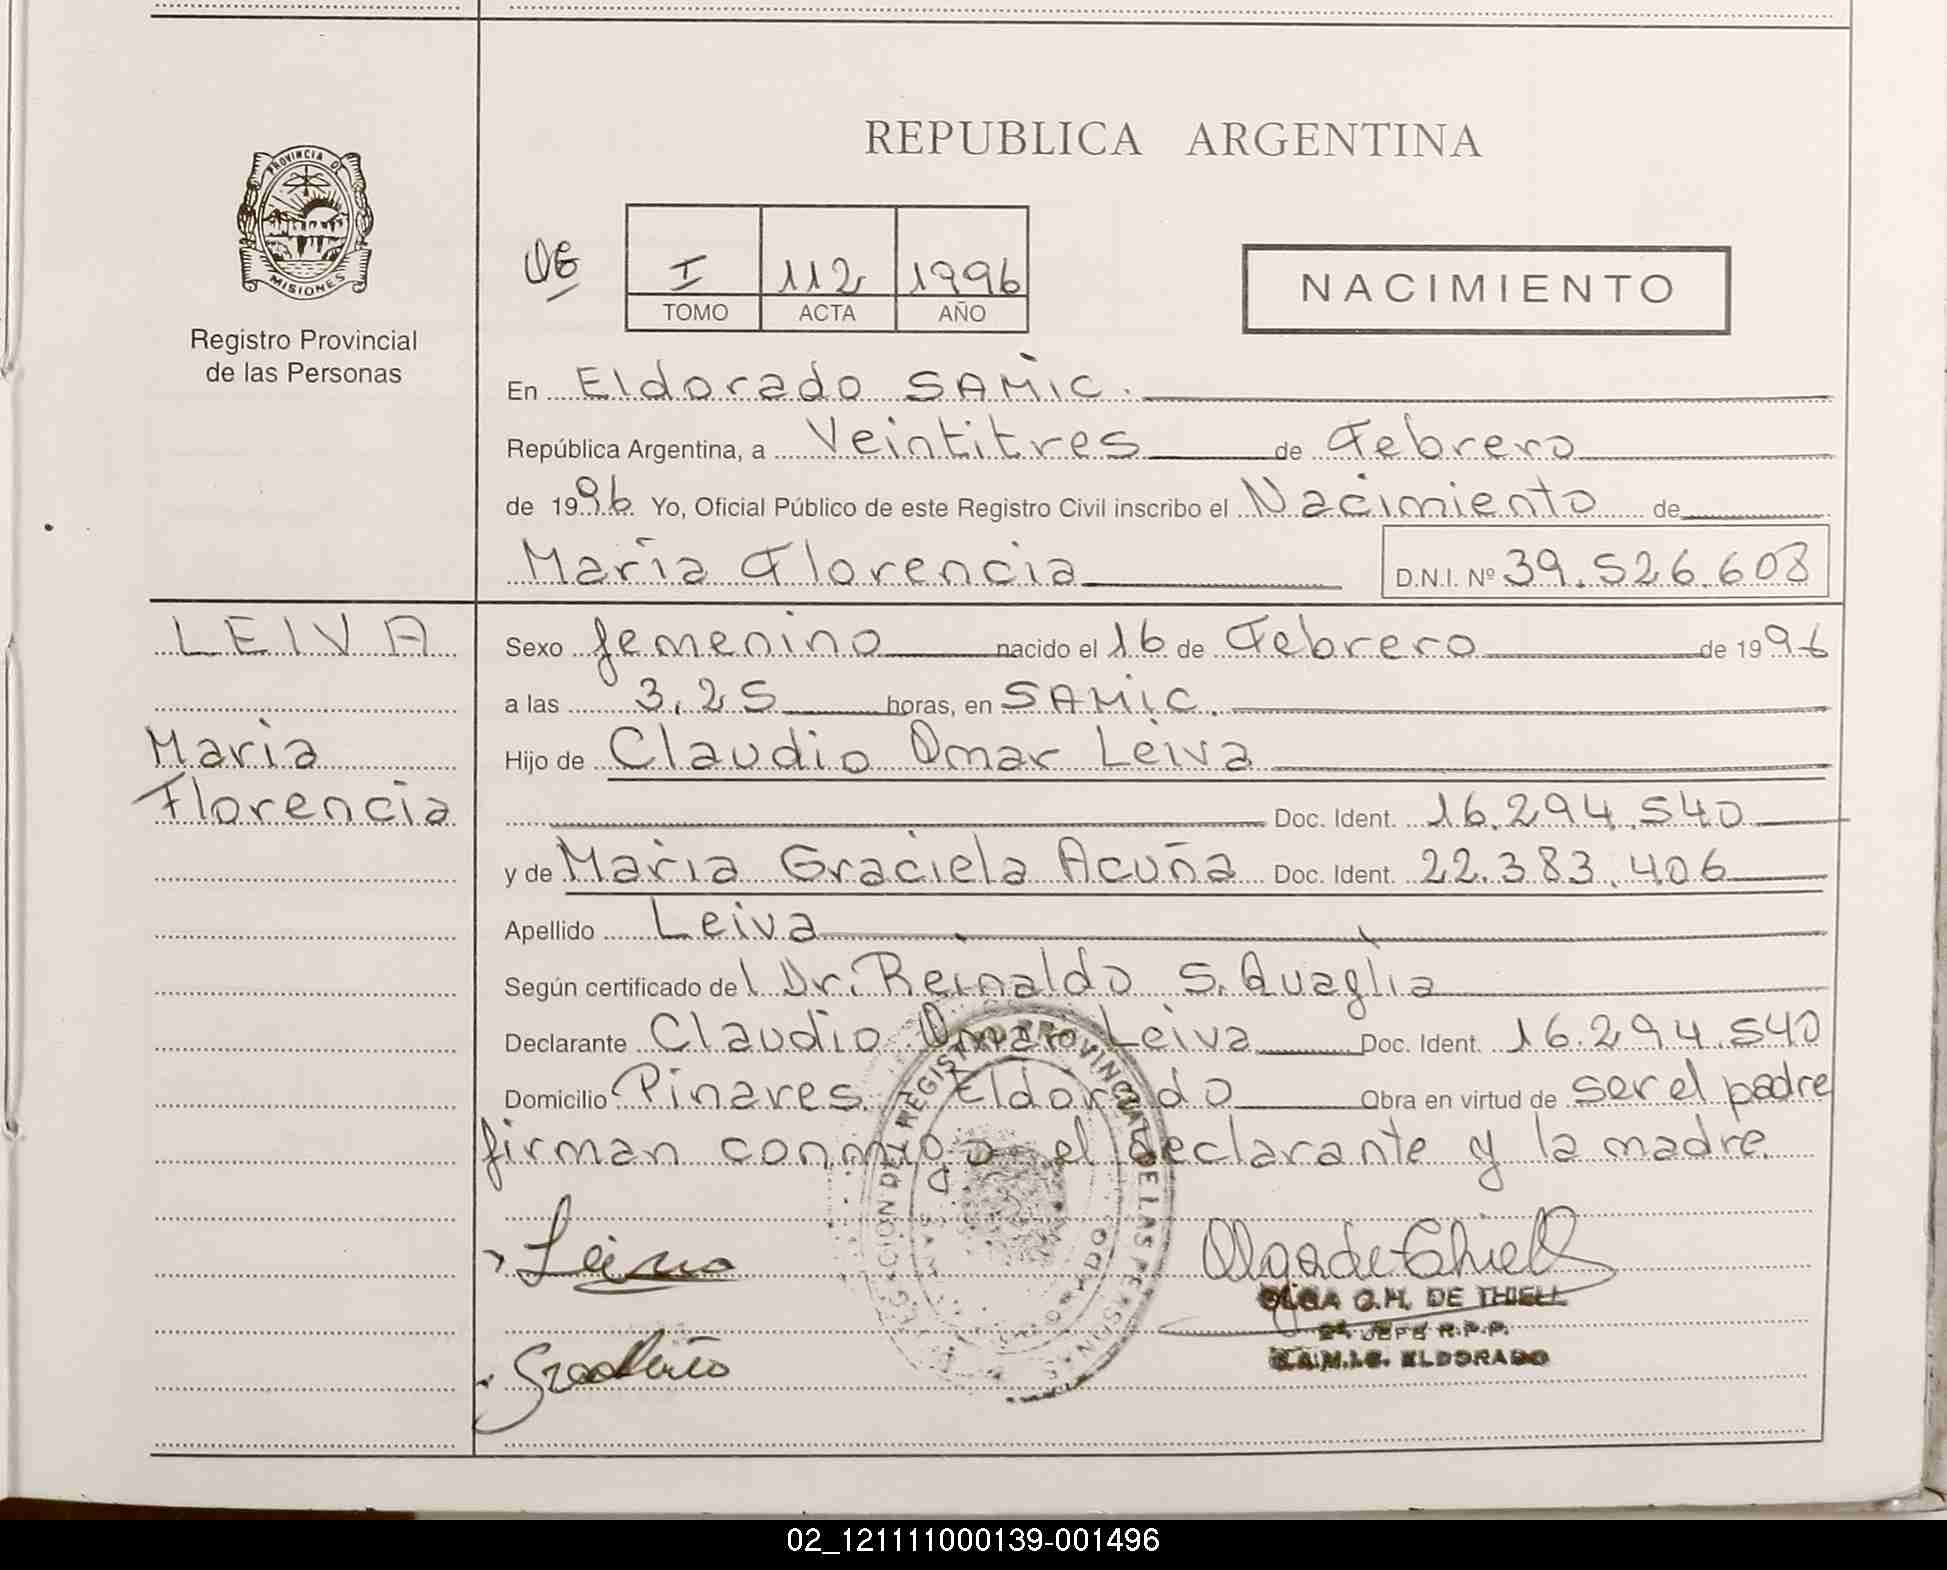 REPUBLICA ARGENTINA
PROVINCIA DE
MISIONES
Registro Provincial
de las Personas
I 112 1996
TOMO ACTA AÑO
NACIMIENTO
En Eldorado SAMIC.
República Argentina, a Veintitres de Febrero
de 1996 Yo, Oficial Público de este Registro Civil inscribo el Nacimiento de
María Florencia D.N.I. Nº 39.526.608
LEIVA
Maria
Florencia
Sexo femenino nacido el 16 de Febrero de 1996
a las 3.25 horas, en SAMIC.
Hijo de Claudio Omar Leiva
Doc. Ident. 16.294.540
y de Maria Graciela Acuña Doc. Ident. 22.383.406
Apellido Leiva
Según certificado del Dr. Reinaldo S. Quaglia
Declarante Claudio Omar Leiva Doc. Ident. 16.294.540
Domicilio Pinares Eldorado Obra en virtud de ser el padre
firman conmigo el declarante y la madre.
Leiva
Olga de Thiell
OLGA G.H. DE THIELL
2ª JEFE R.P.P.
S.A.M.I.C. ELDORADO
DELEGACION DEL REGISTRO PROVINCIAL DE LAS PERSONAS
02_121111000139-001496